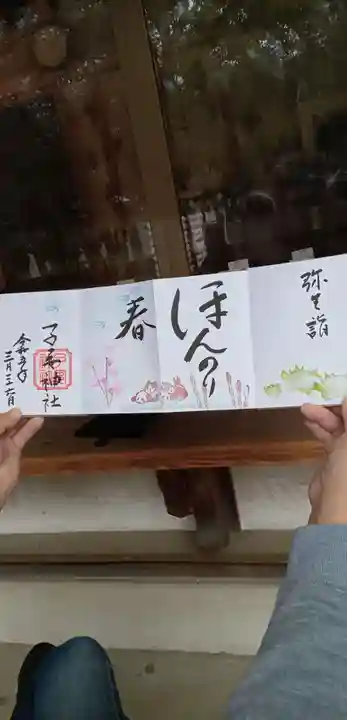 弥生詣
ほんのり
春
子安神社
令和五年
三月三六日